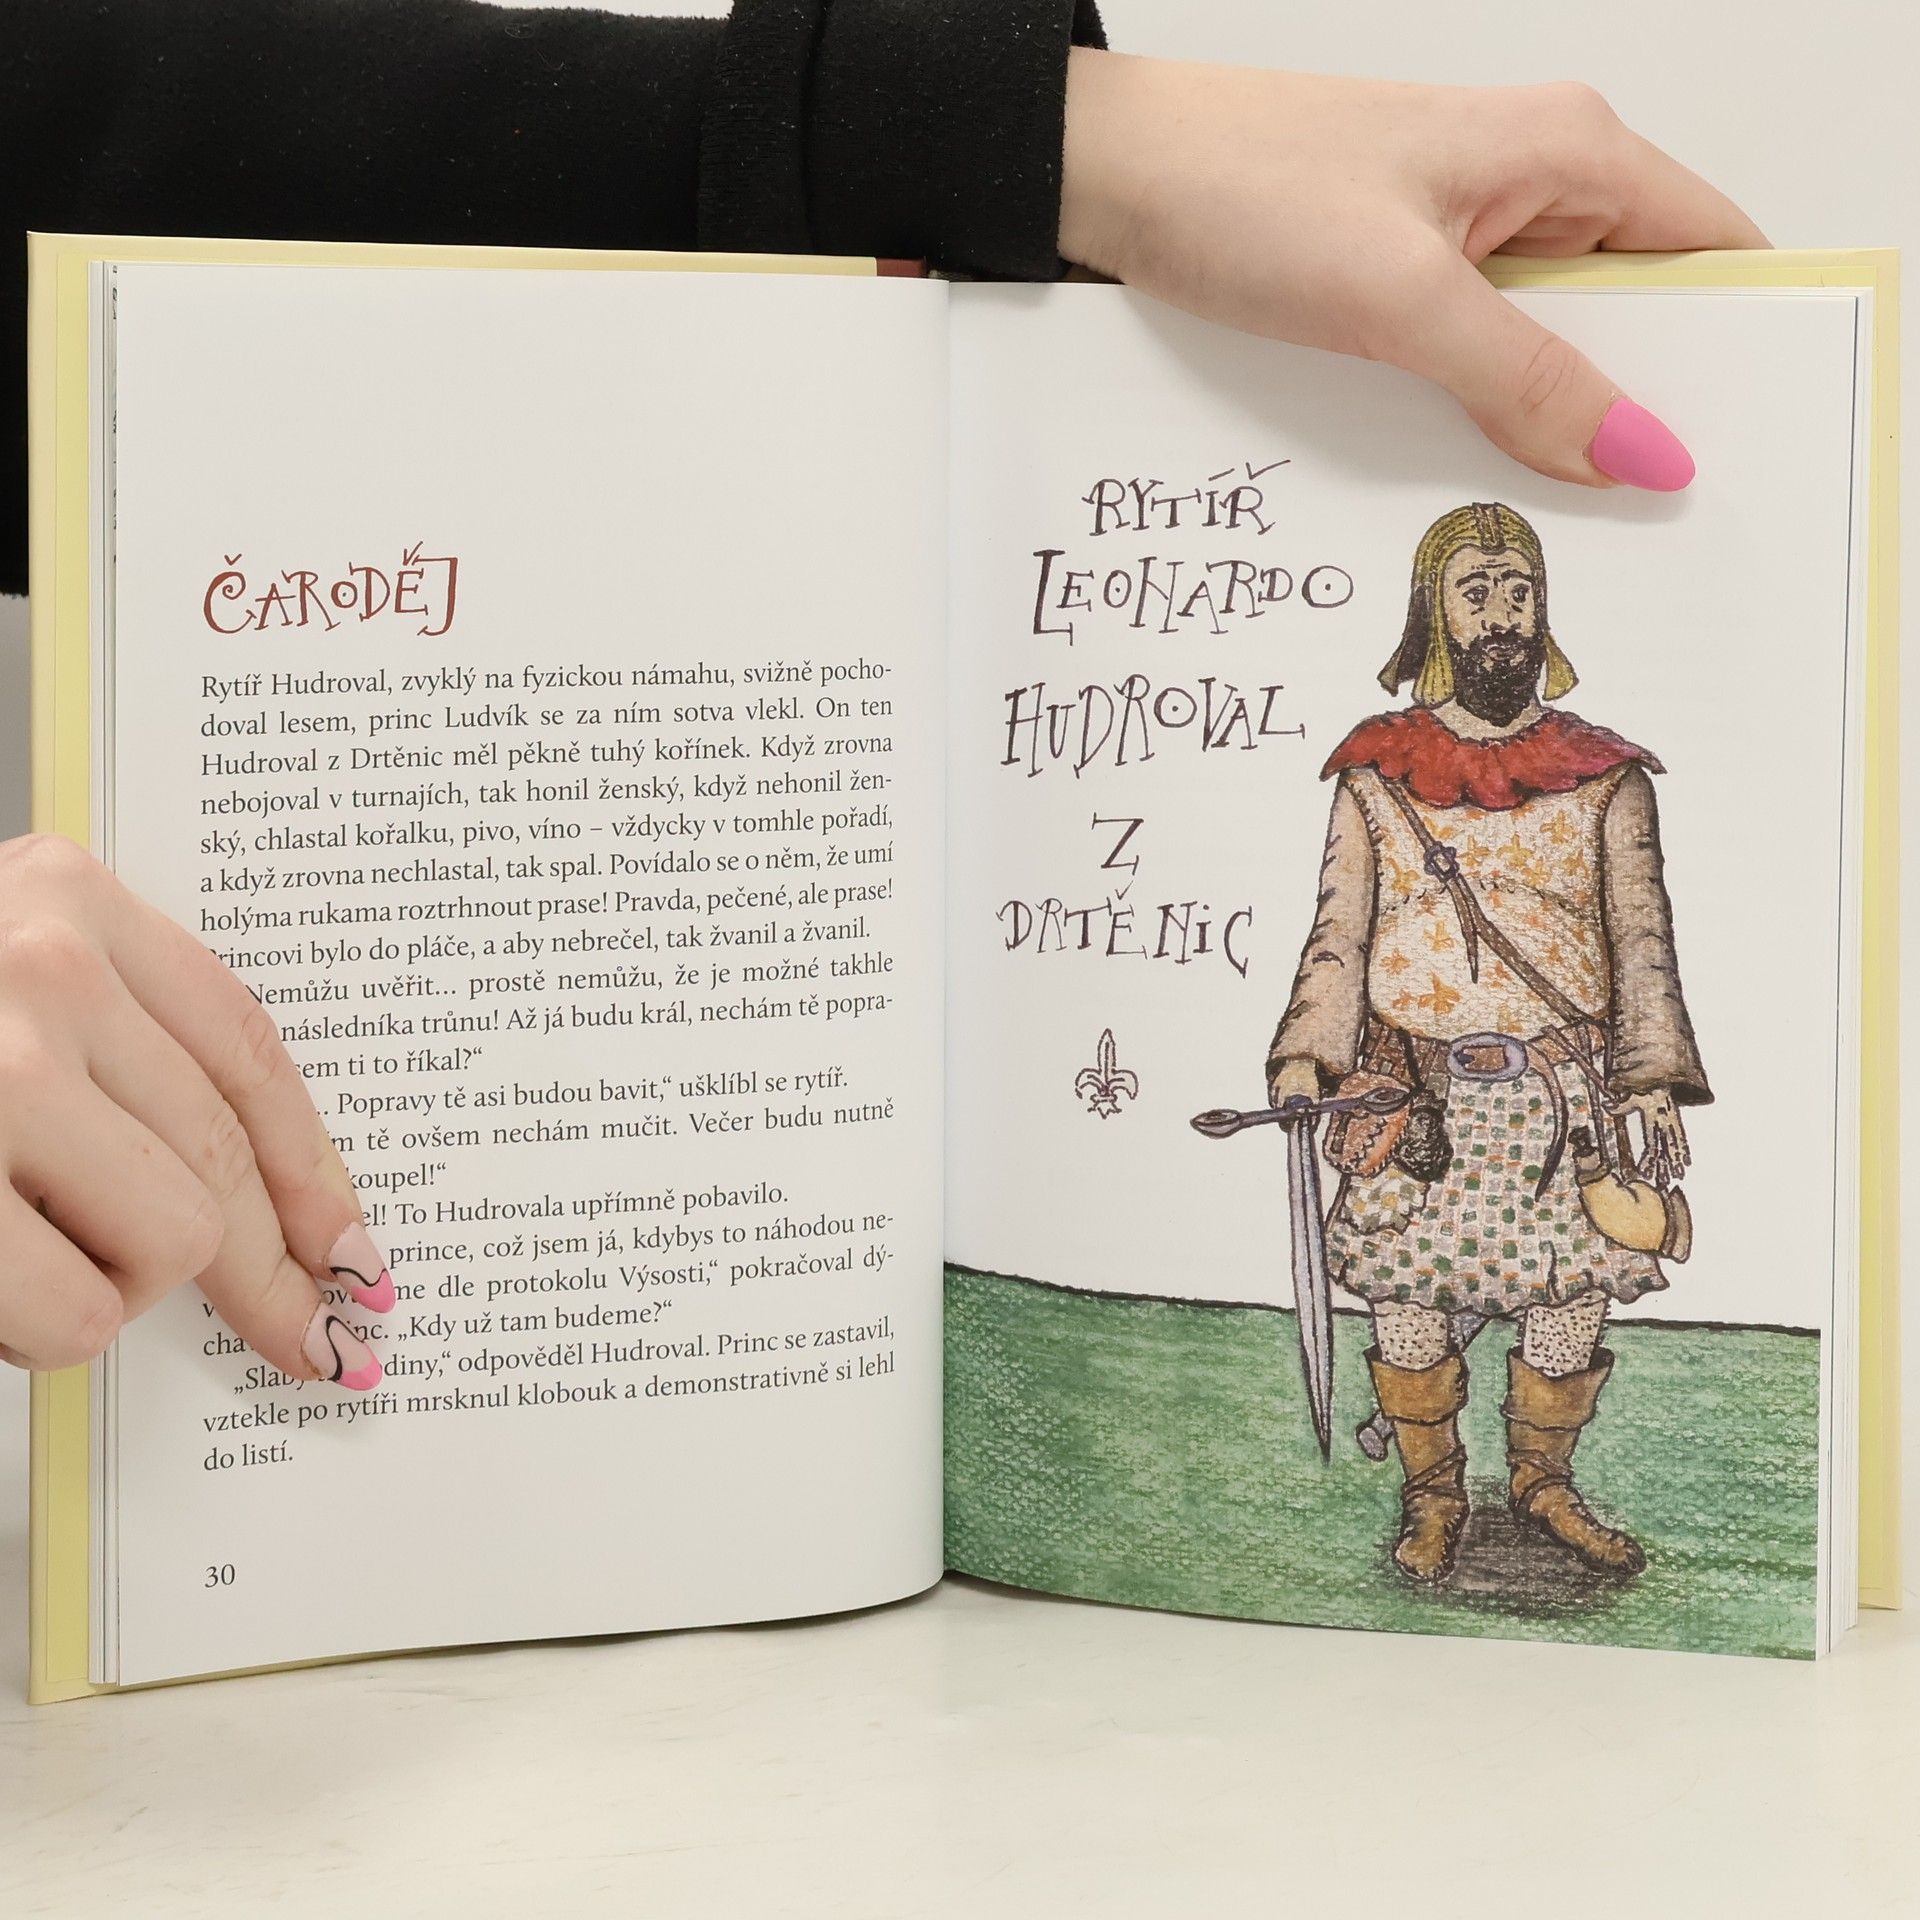 ČARODĚJ
Rytíř Hudroval, zvyklý na fyzickou námahu, svižně pocho-
doval lesem, princ Ludvík se za ním sotva vlekl. On ten
Hudroval z Drtěnic měl pěkně tuhý kořínek. Když zrovna
nebojoval v turnajích, tak honil ženský, když nehonil žen-
ský, chlastal kořalku, pivo, víno – vždycky v tomhle pořadí,
a když zrovna nechlastal, tak spal. Povídalo se o něm, že umí
holýma rukama roztrhnout prase! Pravda, pečené, ale prase!
bylo do pláče, a aby nebrečel, tak žvanil a žvanil.
Nemůžu uvěřit... prostě nemůžu, že je možné takhle
následníka trůnu! Až já budu král, nechám tě popra-
ti to říkal?“
.. Popravy tě asi budou bavit,“ ušklíbl se rytíř.
tě ovšem nechám mučit. Večer budu nutně
koupel!“
To Hudrovala upřímně pobavilo.
prince, což jsem já, kdybys to náhodou ne-
dle protokolu Výsosti,“ pokračoval dý-
„Kdy už tam budeme?“
odpověděl Hudroval. Princ se zastavil,
vztekle po rytíři mrsknul klobouk a demonstrativně si lehl
do listí.
30
RYTÍŘ
LEONARDO
HUDROVAL
Z
DRTĚNiC